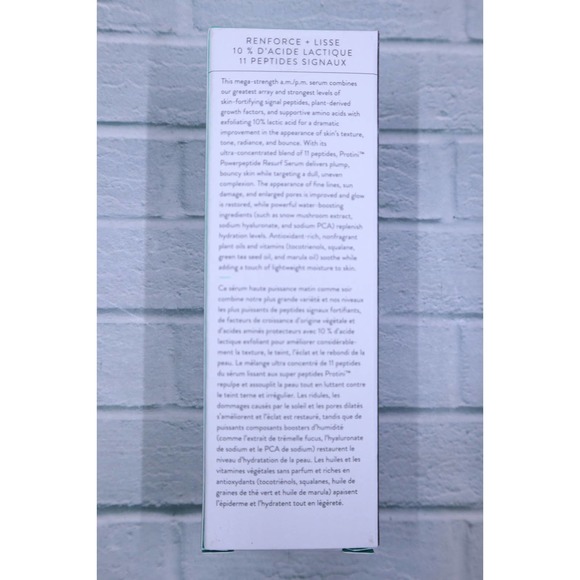 RENFORCE + LISSE
10 % D'ACIDE LACTIQUE
11 PEPTIDES SIGNAUX
This mega-strength a.m./p.m. serum combines
our greatest array and strongest levels of
skin-fortifying signal peptides, plant-derived
growth factors, and supportive amino acids with
exfoliating 10% lactic acid for a dramatic
improvement in the appearance of skin's texture,
tone, radiance, and bounce. With its
ultra-concentrated blend of 11 peptides, Protini™
Powerpeptide Resurf Serum delivers plump,
bouncy skin while targeting a dull, uneven
complexion. The appearance of fine lines, sun
damage, and enlarged pores is improved and glow
is restored, while powerful water-boosting
ingredients (such as snow mushroom extract,
sodium hyaluronate, and sodium PCA) replenish
hydration levels. Antioxidant-rich, nonfragrant
plant oils and vitamins (tocotrienols, squalane,
green tea seed oil, and marula oil) soothe while
adding a touch of lightweight moisture to skin.
Ce sérum haute puissance matin comme soir
combine notre plus grande variété et nos niveaux
les plus puissants de peptides signaux fortifiants,
de facteurs de croissance d'origine végétale et
d'acides aminés protecteurs avec 10 % d'acide
lactique exfoliant pour améliorer considérable-
ment la texture, le teint, l'éclat et le rebondi de la
peau. Le mélange ultra concentré de 11 peptides
du sérum lissant aux super peptides Protini™
repulpe et assouplit la peau tout en luttant contre
le teint terne et irrégulier. Les ridules, les
dommages causés par le soleil et les pores dilatés
s'améliorent et l'éclat est restauré, tandis que de
puissants composants boosters d'humidité
(comme l'extrait de trémelle fucus, l'hyaluronate
de sodium et le PCA de sodium) restaurent le
niveau d'hydratation de la peau. Les huiles et les
vitamines végétales sans parfum et riches en
antioxydants (tocotriénols, squalanes, huile de
graines de thé vert et huile de marula) apaisent
l'épiderme et l'hydratent tout en légèreté.